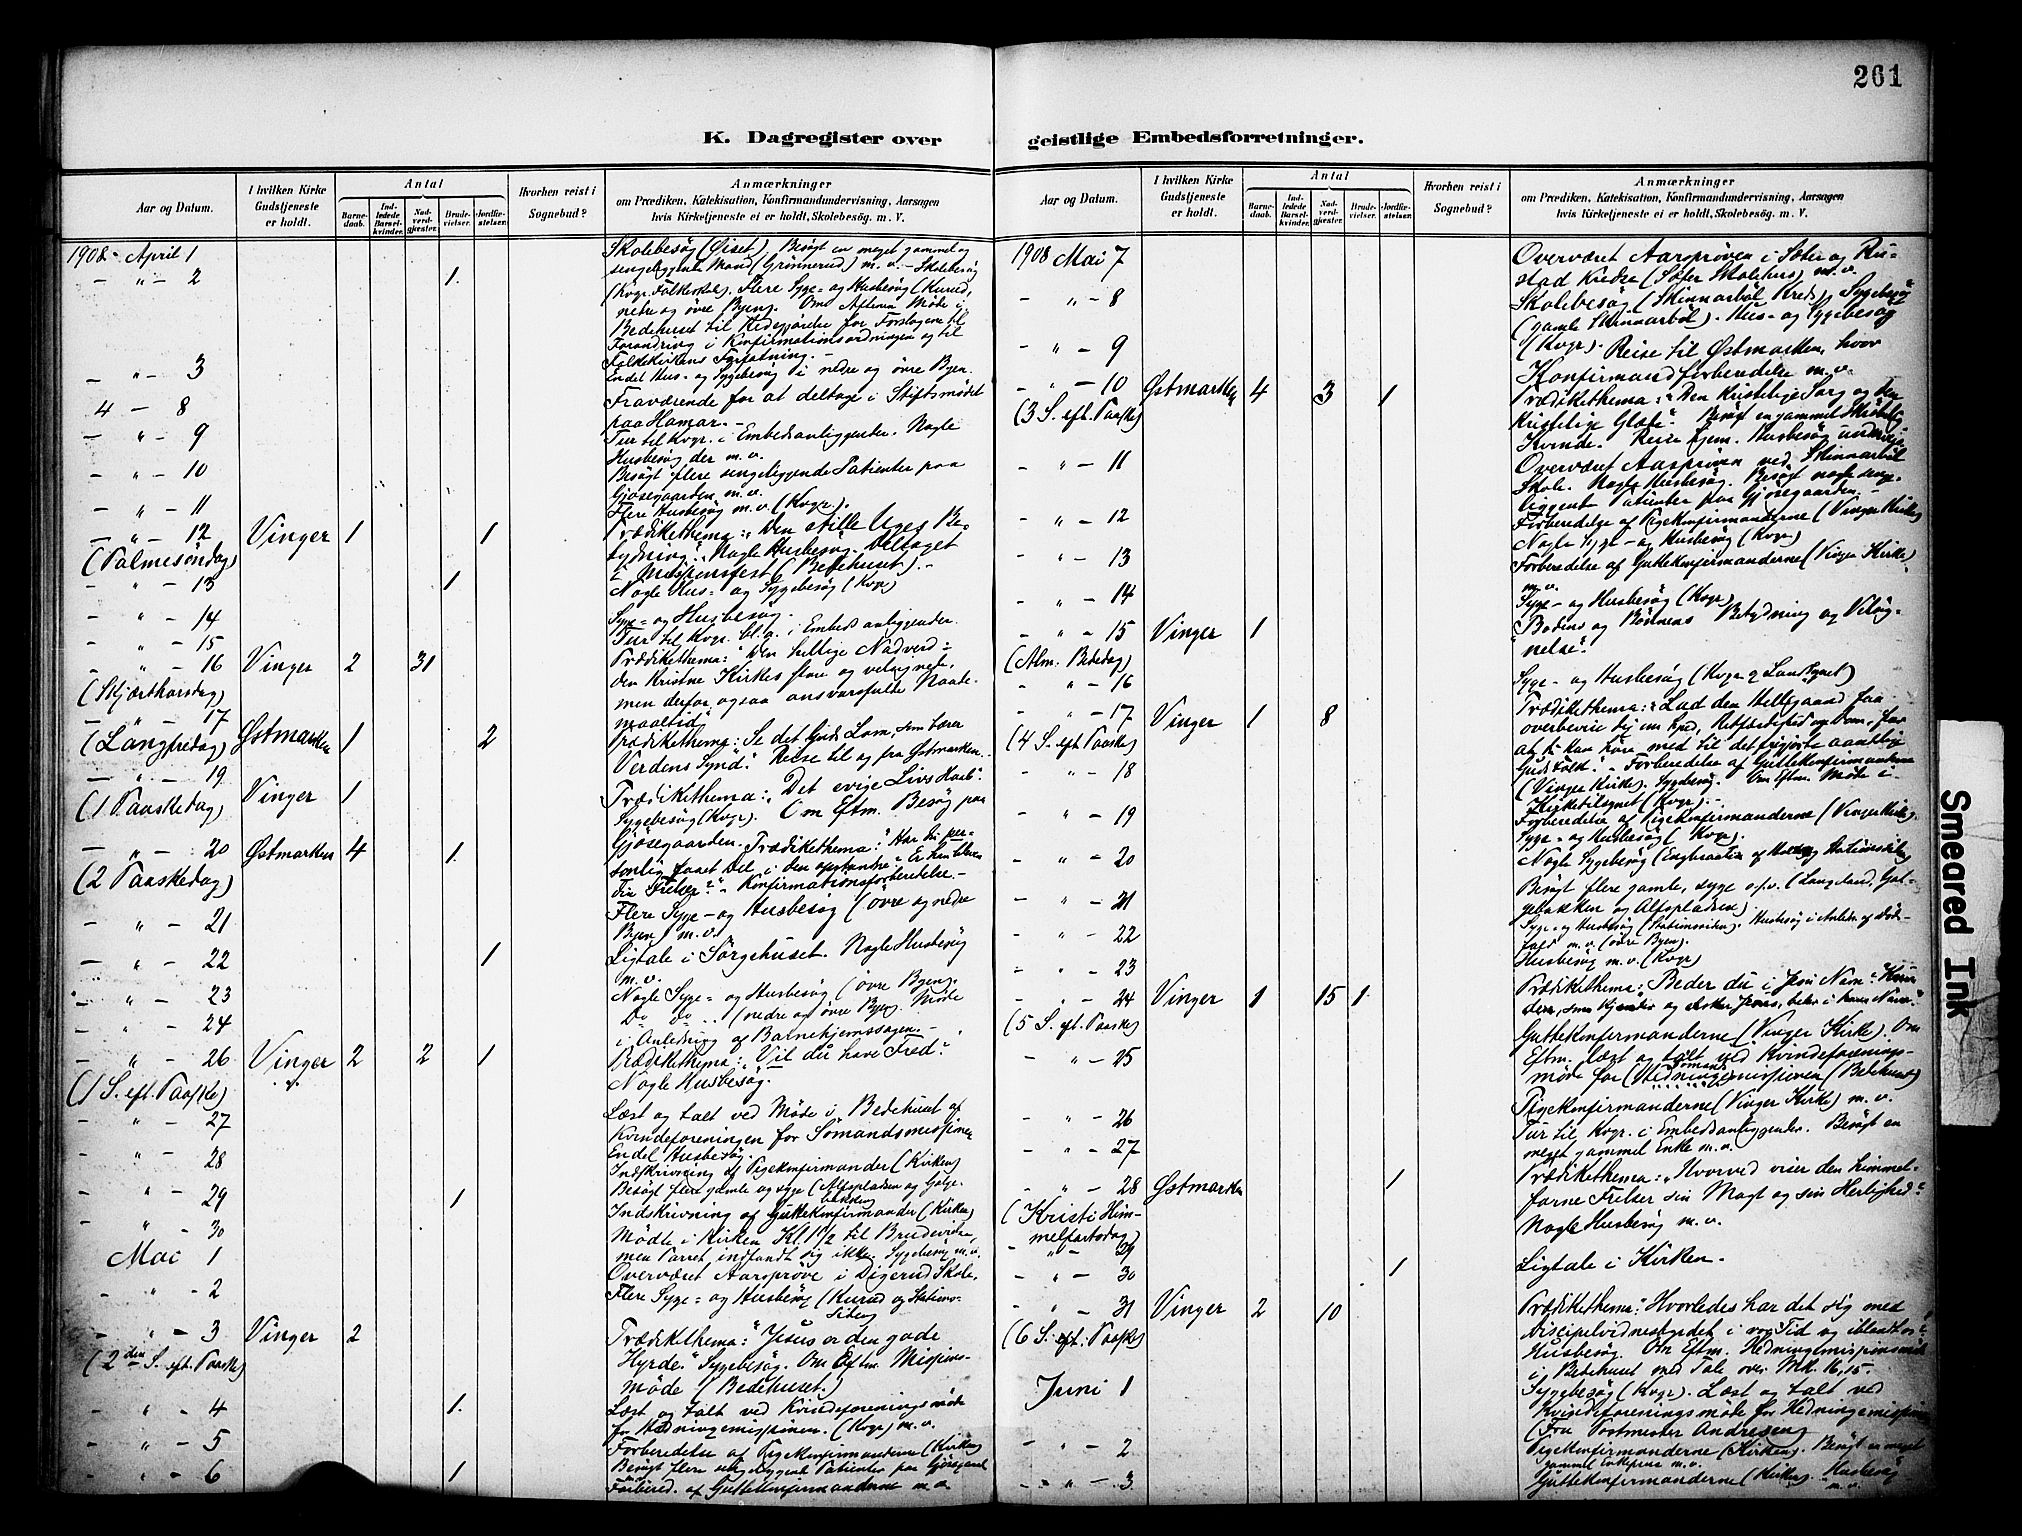 261
K. Dagregister over geistlige Embedsforretninger.
Aar og Datum.
I hvilken Kirke Gudstjeneste er holdt.
Antal
Barnedaab.
Indledede Barselkvinder.
Nadverdgjester.
Brudevielser.
Jordfæstelser.
Hvorhen reist i Sognebud?
Anmærkninger
om Prædiken, Katekisation, Konfirmandundervisning, Aarsagen
hvis Kirketjeneste ei er holdt, Skolebesøg. m. V.
1908 - April 1
Skolebesøg (Øiset). Besøgt en meget gammel og
sengeliggende Mand (Grønnerud) m. v. - Skolebesøg
- " - 2 1.
(Kvgr. Folkeskole). Flere Syge- og Husbesøg (Kurud,
nedre og øvre Byen). Om Aftenen Møde i
Bedehuset til Redegjørelse for Forslagene til
Forandring i Konfirmationsordningen og til
Folkekirkens Forfatning. -
- " - 3
Endel Hus- og Sygebesøg i nedre og øvre Byen.
4 - 8
Fraværende for at deltage i Stiftsmødet
paa Hamar. -
- " - 9
Tur til Kvgr. i Embedsanliggender. Nogle
Husbesøg der m. v.
- " - 10
Besøgt flere sengeliggende Patienter paa
Gjøsegaarden m. v.
- " - 11
Flere Husbesøg m. v. (Kvgr).
- " - 12 Vinger 1 1
(Palmesøndag)
Prædikethema: "Den stille Uges Be-
tydning". Nogle Husbesøg. Deltaget
i Missionsfest (Bedehuset). -
- " - 13 1
Nogle Hus- og Sygebesøg (Kvgr)
- " - 14
Syge- og Husbesøg.
- " - 15
Tur til Kvgr. bl. a. i Embedsanliggender.
- " - 16 Vinger 2 31
(Skjærthorsdag)
Prædikethema: "Den hellige Nadverd -
den Kristne Kirkes store og velsignede,
men derfor ogsaa ansvarsfulde Naade-
maaltid"
- " - 17
(Langfredag) Østmarken 1 2
Prædikethema: Se det Guds Lam, som bærer
Verdens Synd". Reise til og fra Østmarken.
- " - 19
(1 Paaskedag) Vinger 1
Prædikethema: "Det evige Livs Haab".
Sygebesøg (Kvgr). Om Eftm. Besøg paa
Gjøsegaarden.
- " - 20 Østmarken 4 1.
(2 Paaskedag)
Prædikethema: "Har du per-
sonlig faaet Del i den opstandne? Er han bleven
din Frelser?" Konfirmationsforberedelse -
- " - 21
Flere Syge- og Husbesøg (øvre og nedre
Byen) m. v.
- " - 22 1
Ligtale i Sørgehuset. Nogle Husbesøg
m. v.
- " - 23
Nogle Syge- og Husbesøg (øvre Byen).
- " - 24
Do Do (nedre og øvre Byen). Møde
i Anledning af Barnehjemssagen. -
- " - 26 Vinger 2 2 1
(1 S. eft. Paaske)
Prædikethema: "Vil du have Fred?"
Nogle Husbesøg.
- " - 27
Læst og talt ved Møde i Bedehuset af
Kvindeforeningen for Sømandsmissionen
- " - 28
Endel Husbesøg.
Indskrivning af Pigekonfirmander (Kirken)
- " - 29 1
Besøgt flere gamle og syge (Alfspladsen og Galge-
bakken)
- " - 30
Indskrivning af Guttekonfirmander (Kirken)
Mai 1
Mødte i Kirken Kl. 1 1/2 til Brudevielse,
men Parret indfandt sig ikke. Sygebesøg m. v.
- " - 2
Overværet Aarsprøve i Digerud Skole.
Flere Syge- og Husbesøg (Kurud og Stations-
siden)
- " - 3 Vinger 2
(2den S. eft. Paaske)
Prædikethema: "Jesus er den gode
Hyrde." Sygebesøg. Om Eftm. Missions-
møde (Bedehuset.)
- " - 4 1.
Læst og talt ved Kvindeforeningsmøde
for Hedningemissionen. (Kvgr) m. v.
- " - 5
Forberedelse af Pigekonfirmanderne (Kirken)
- " - 6 1
Besøgt flere sengeliggende Patienter paa Gjøsegaard
Forbered. af Guttekonfirmanderne m. v.
Aar og Datum.
I hvilken Kirke Gudstjeneste er holdt.
Antal
Barnedaab.
Indledede Barselkvinder.
Nadverdgjester.
Brudevielser.
Jordfæstelser.
Hvorhen reist i Sognebud?
Anmærkninger
om Prædiken, Katekisation, Konfirmandundervisning, Aarsagen
hvis Kirketjeneste ei er holdt, Skolebesøg. m. V.
1908 Mai 7
Overværet Aarsprøven i Sæter og Ru-
stad Kredse (Sæter Skolehus) m. v.
- " - 8
Skolebesøg (Skinnarbøl Kreds), Sygebesøg
(gamle Skinnarbøl). Hus- og Sygebesøg
(Kvgr).
- " - 9
Reise til Østmarken, hvor
Konfirmandforberedelse m. v.
- " - 10 Østmarken 4 3 1
(3 S. eft. Paaske)
Prædikethema: "Den kristelige Sorg og den
kristelige Glæde". Besøgt en gammel
Kvinde. Reise hjem. Husbesøg underveis.
- " - 11
Overværet Aarsprøven ved Skinnarbøl
Skole. Nogle Husbesøg. Besøgt nogle senge-
liggende Patienter paa Gjøsegaarden. -
- " - 12
Forberedelse af Pigekonfirmanderne (Vinger Kirke)
Nogle Syge- og Husbesøg (Kvgr)
- " - 13
Forberedelse af Guttekonfirmanderne (Vinger Kirke)
m. v.
- " - 14
Syge- og Husbesøg (Kvgr)
- " - 15 Vinger 1
(Alm. Bededag)
"Bodens og Bønnens Betydning og Velsig-
nelse".
- " - 16
Syge- og Husbesøg (Kvgr og Landsognet)
- " - 17 Vinger 1 8
(4 S. eft. Paaske)
Prædikethema: "Lad den Helligaand faa
overbevise dig om Synd, Retfærdighed og Dom, for
at du kan høre med til det frigjorte aandelige
Guds Folk". -
- " - 18
Forberedelse af Guttekonfirmanderne
(Vinger Kirke). Sygebesøg. Om Eftm. Møde i
Kirketilsynet (Kvgr). -
- " - 19
Forberedelse af Pigekonfirmanderne (Vinger Kirke).
Syge- og Husbesøg (Kvgr).
- " - 20
Nogle Sygebesøg
- " - 21
Besøgt flere gamle, syge o. s. v. (Langeland, Gal-
gebakken og Alfspladsen)
- " - 22
Syge- og Husbesøg (Stationssiden). Husbesøg i Anledn. af Døds-
fald m. v. (øvre Byen).
- " - 23
Husbesøg m. v. (Kvgr)
- " - 24 Vinger 1 15 1
(5 S. eft. Paaske)
Prædikethema: "Beder du i Jesu Navn? Kun
den, som kjender og elsker Jesus, beder i hans Navn."
- " - 25
Guttekonfirmanderne (Vinger Kirke). Om
Eftm. læst og talt ved Kvindeforenings-
møde for Sømandsmissionen (Bedehuset)
- " - 26
Pigekonfirmanderne (Vinger Kirke) m. v.
- " - 27
Tur til Kvgr. i Embedsanliggender. Besøgt en
meget gammel Enke m. v.
- " - 28 Østmarken 1
(Kristi Him-
melfartsdag)
Prædikethema: "Hvorved viser den himmel-
farne Frelser sin Magt og sin Herlighed?"
- " - 29
Nogle Husbesøg m. v.
- " - 30 1
Ligtale i Kirken.
- " - 31 Vinger 2 10
(6 S. eft. Paaske)
Prædikethema: "Hvorledes har det sig med
Discipelvidnesbyrdet i vor Tid og iblandt os?"
Husbesøg. Om Eftm. Hedningemissionsmøde
i Bedehuset med Tale over Mk. 16, 15.
Juni 1
Sygebesøg (Kvgr). Læst og talt ved
Kvindeforeningsmøde for Hedningemissionen
(Fru Postmester Andresen)
- " - 2
Pigekonfirmanderne (Kirken). Besøgt en meget
gammel Enkefrue m. v.
- " - 3
Guttekonfirmanderne (Kirken). Husbesøg
m. v.
Smeared Ink